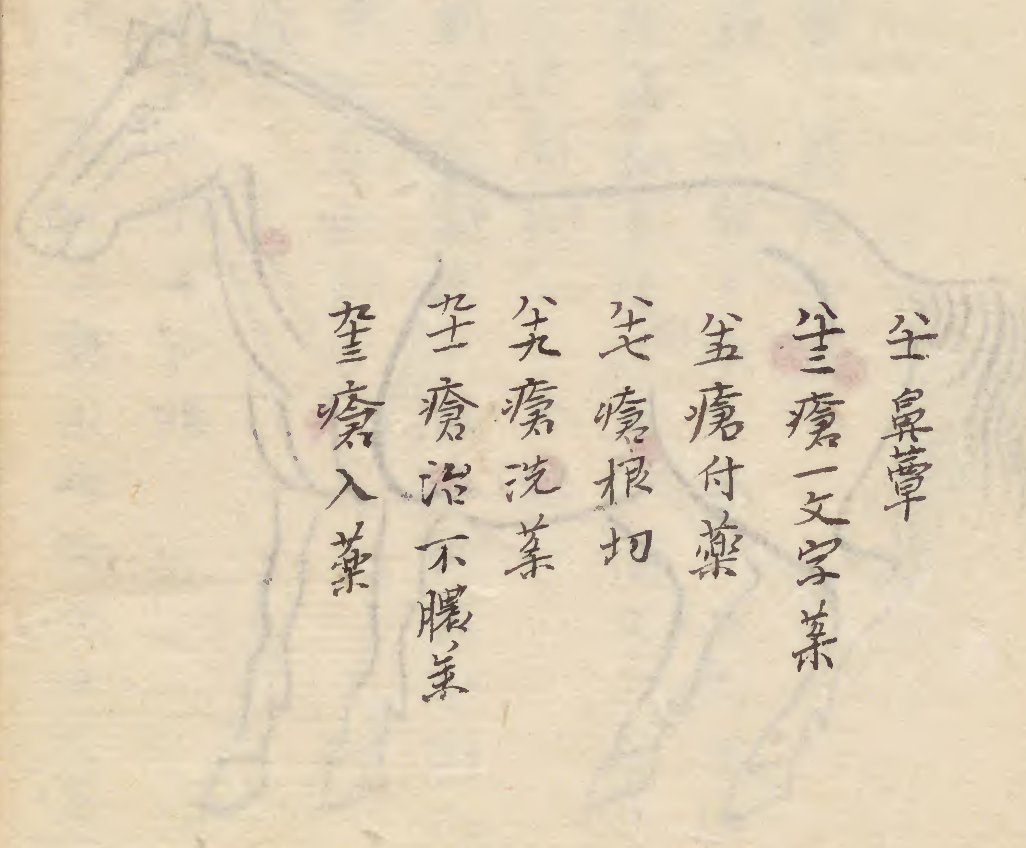 八十一 鼻蕈
八十三 瘡一文字薬
八十五 瘡付薬
八十七 瘡根切
八十九 瘡洗薬
九十一 瘡治不膿薬
九十三 瘡入薬